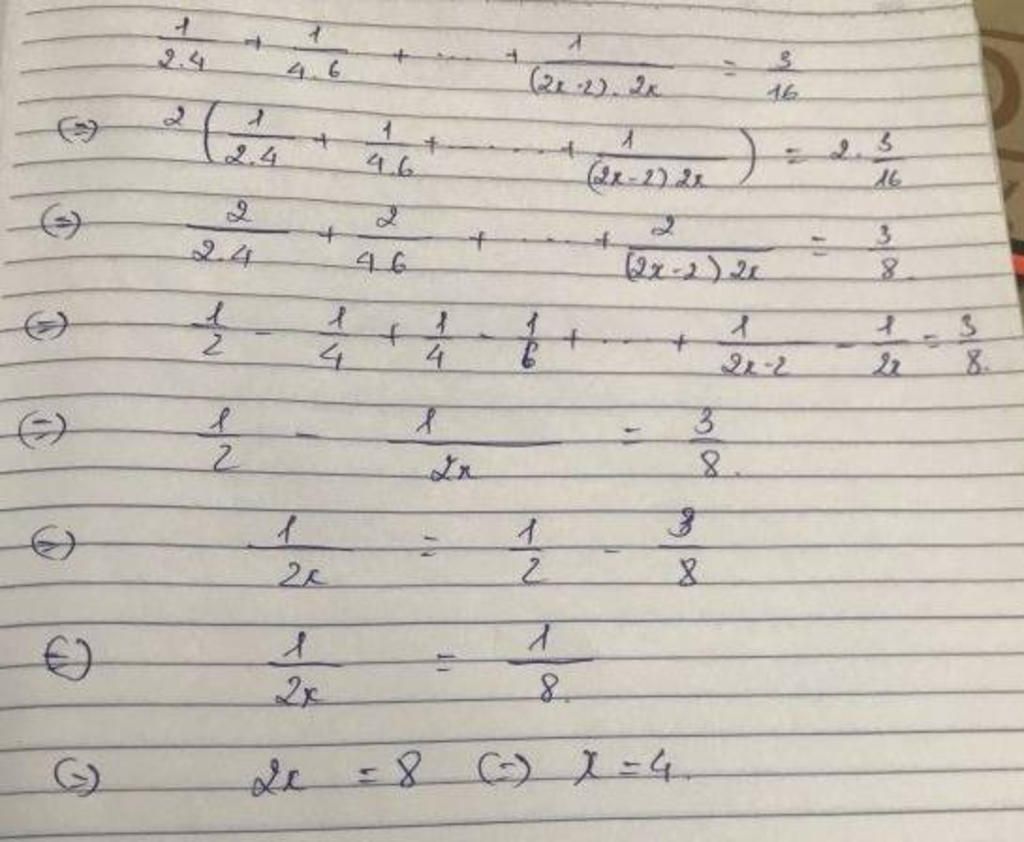 1/2.4 + 1/4.6 + ... + 1/(2x-2).2x = 3/16
(=) 2(1/2.4 + 1/4.6 + ..... + 1/(2x-2)2x) = 2.3/16
(=) 2/2.4 + 2/4.6 + ... + 2/(2x-2)2x = 3/8.
(=) 1/2 - 1/4 + 1/4 - 1/6 + ... + 1/2x-2 - 1/2x = 3/8.
(=) 1/2 - 1/2x = 3/8.
(=) 1/2x = 1/2 - 3/8
(=) 1/2x = 1/8.
(=) 2x = 8 (=) x = 4.